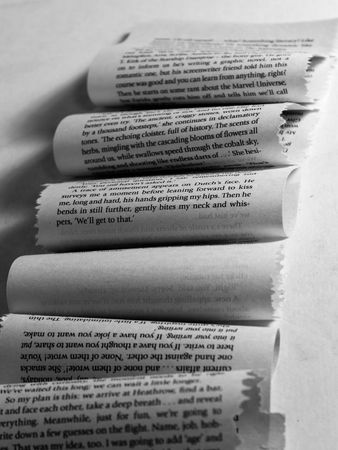 what? Something literary? Like
T. Kirk of the Starship
on to inform us he's writing a graphic novel, not a
romantic one, but his screenwriter friend told him this
course was good and you can learn from anything, right?
Then he starts on some rant about the Marvel Universe,
gently cuts him off and tells him we'll call
better even try. The ancient,
by a thousand footsteps,' she continues in declamatory
tones. 'The echoing cloister, full of history. The scents of
herbs, mingling with the cascading blooms of flowers all
around us, while swallows speed through the cobalt sky,
tumbling and shooting like endless darts of . . .' She hesi-
A trace of amusement appears on Dutch's face. He
surveys me a moment before leaning forward to kiss
me, long and hard, his hands gripping my hips. Then he
bends in still further, gently bites my neck and whis-
pers, 'We'll get to that.'
current affairs . . . and none of She smacks
one hand against the other. 'None of them! You're
here to write. If you have a thought you want to share, put
it into your writing. If you have a joke you want to make,
put it into your writing.
little intimidating. The thin
waited this long; we can wait a little longer.
So my plan is this: we arrive at Heathrow, find a bar,
sit and face each other, take a deep breath . . . and reveal
everything. Meanwhile, just for fun, we're going to
write down a few guesses on the flight. Name, job, hob-
That was my idea, too. I was going to add 'age' and